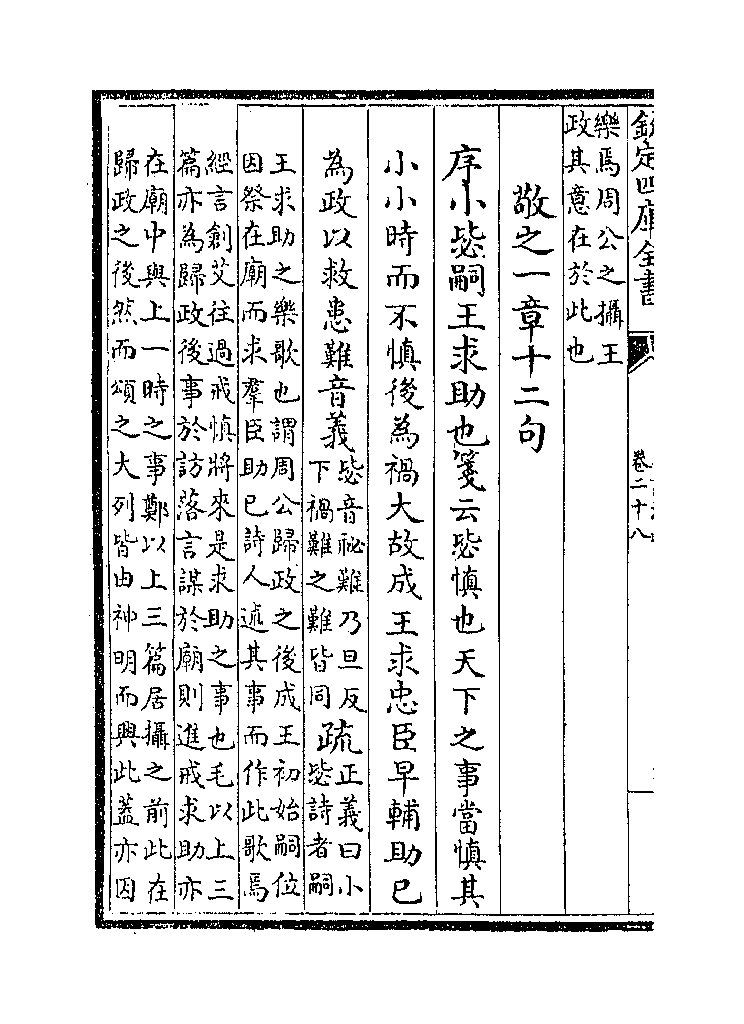 欽定四庫全書
卷二十八
樂焉周公之攝王
政其意在於此也
敬之一章十二句
序小毖嗣王求助也箋云毖慎也天下之事當慎其
小小時而不慎後為禍大故成王求忠臣早輔助已
為政以救患難音義毖音祕難乃旦反
下禍難之難皆同疏正義曰小
毖詩者嗣
王求助之樂歌也謂周公歸政之後成王初始嗣位
因祭在廟而求羣臣助已詩人述其事而作此歌焉
經言創艾往過戒慎將來是求助之事也毛以上三
篇亦為歸政後事於訪落言謀於廟則進戒求助亦
在廟中與上一時之事鄭以上三篇居攝之前此在
歸政之後然而頌之大列皆由神明而興此蓋亦因